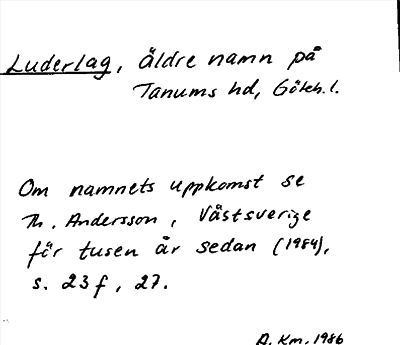 Luderlag, äldre namn på
Tanums hd, Göteb. l.
Om namnets uppkomst se
Th. Andersson, Västsverige
för tusen år sedan (1984),
s. 23 f, 27.
A. Km. 1986